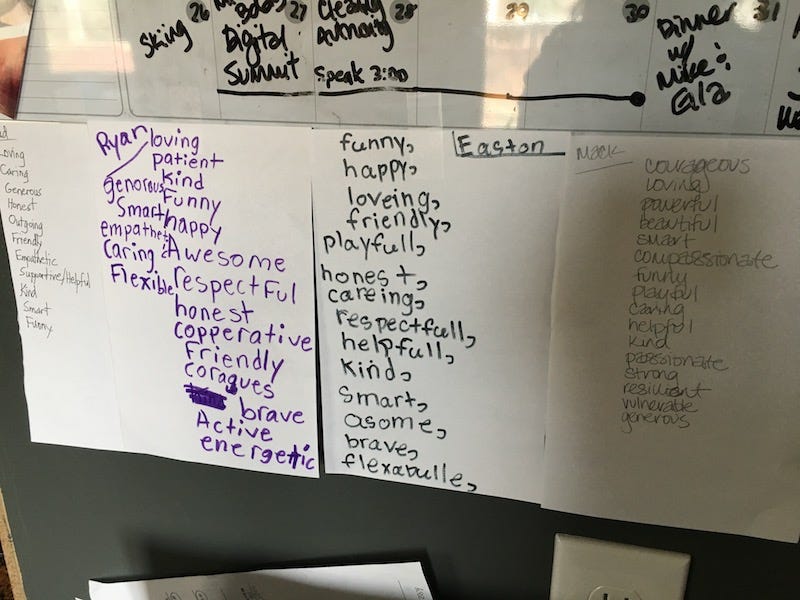 26
Skiing
27
Digital
Summit
28
Speak 3:00
29
30
31
Dinner
w/
Mike:
Loving
Caring
Generous
Honest
Outgoing
Friendly
Empathetic
Supportive/Helpful
Kind
Smart
Funny
Ryan
loving
patient
Kind
genorous
Funny
Smart
happy
empathetic
Awesome
Caring
Flexible
respectful
honest
copperative
Friendly
coragues
brave
Active
energetic
Easton
funny,
happy,
loveing,
friendly,
playfull,
honest,
careing,
respectfull,
helpfull,
kind,
smart,
asome,
brave,
flexabulle,
Mack
courageous
loving
powerful
beautiful
smart
compassionate
funny
playful
caring
helpful
kind
passionate
strong
resilient
vulnerable
generous